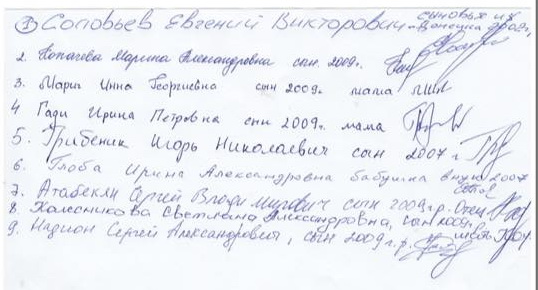 ① Соловьев Евгений Викторович 2009г,
2. Копачева Марина Александровна сын. 2009г.
3. Инна Георгиевна сын 2009г мама
4 Гади Ирина Петровна сын 2009г. мама
5. Грибеник Игорь Николаевич сын 2007 г
6. Глоба Ирина Александровна бабушка внук 2007
7. Атабекян Сергей Владимирович сын 2009г.р. Отец
8. Колесникова Светлана Александровна, сын 2009г. мать
9. Сергей Александрович, сын 2009г.р.